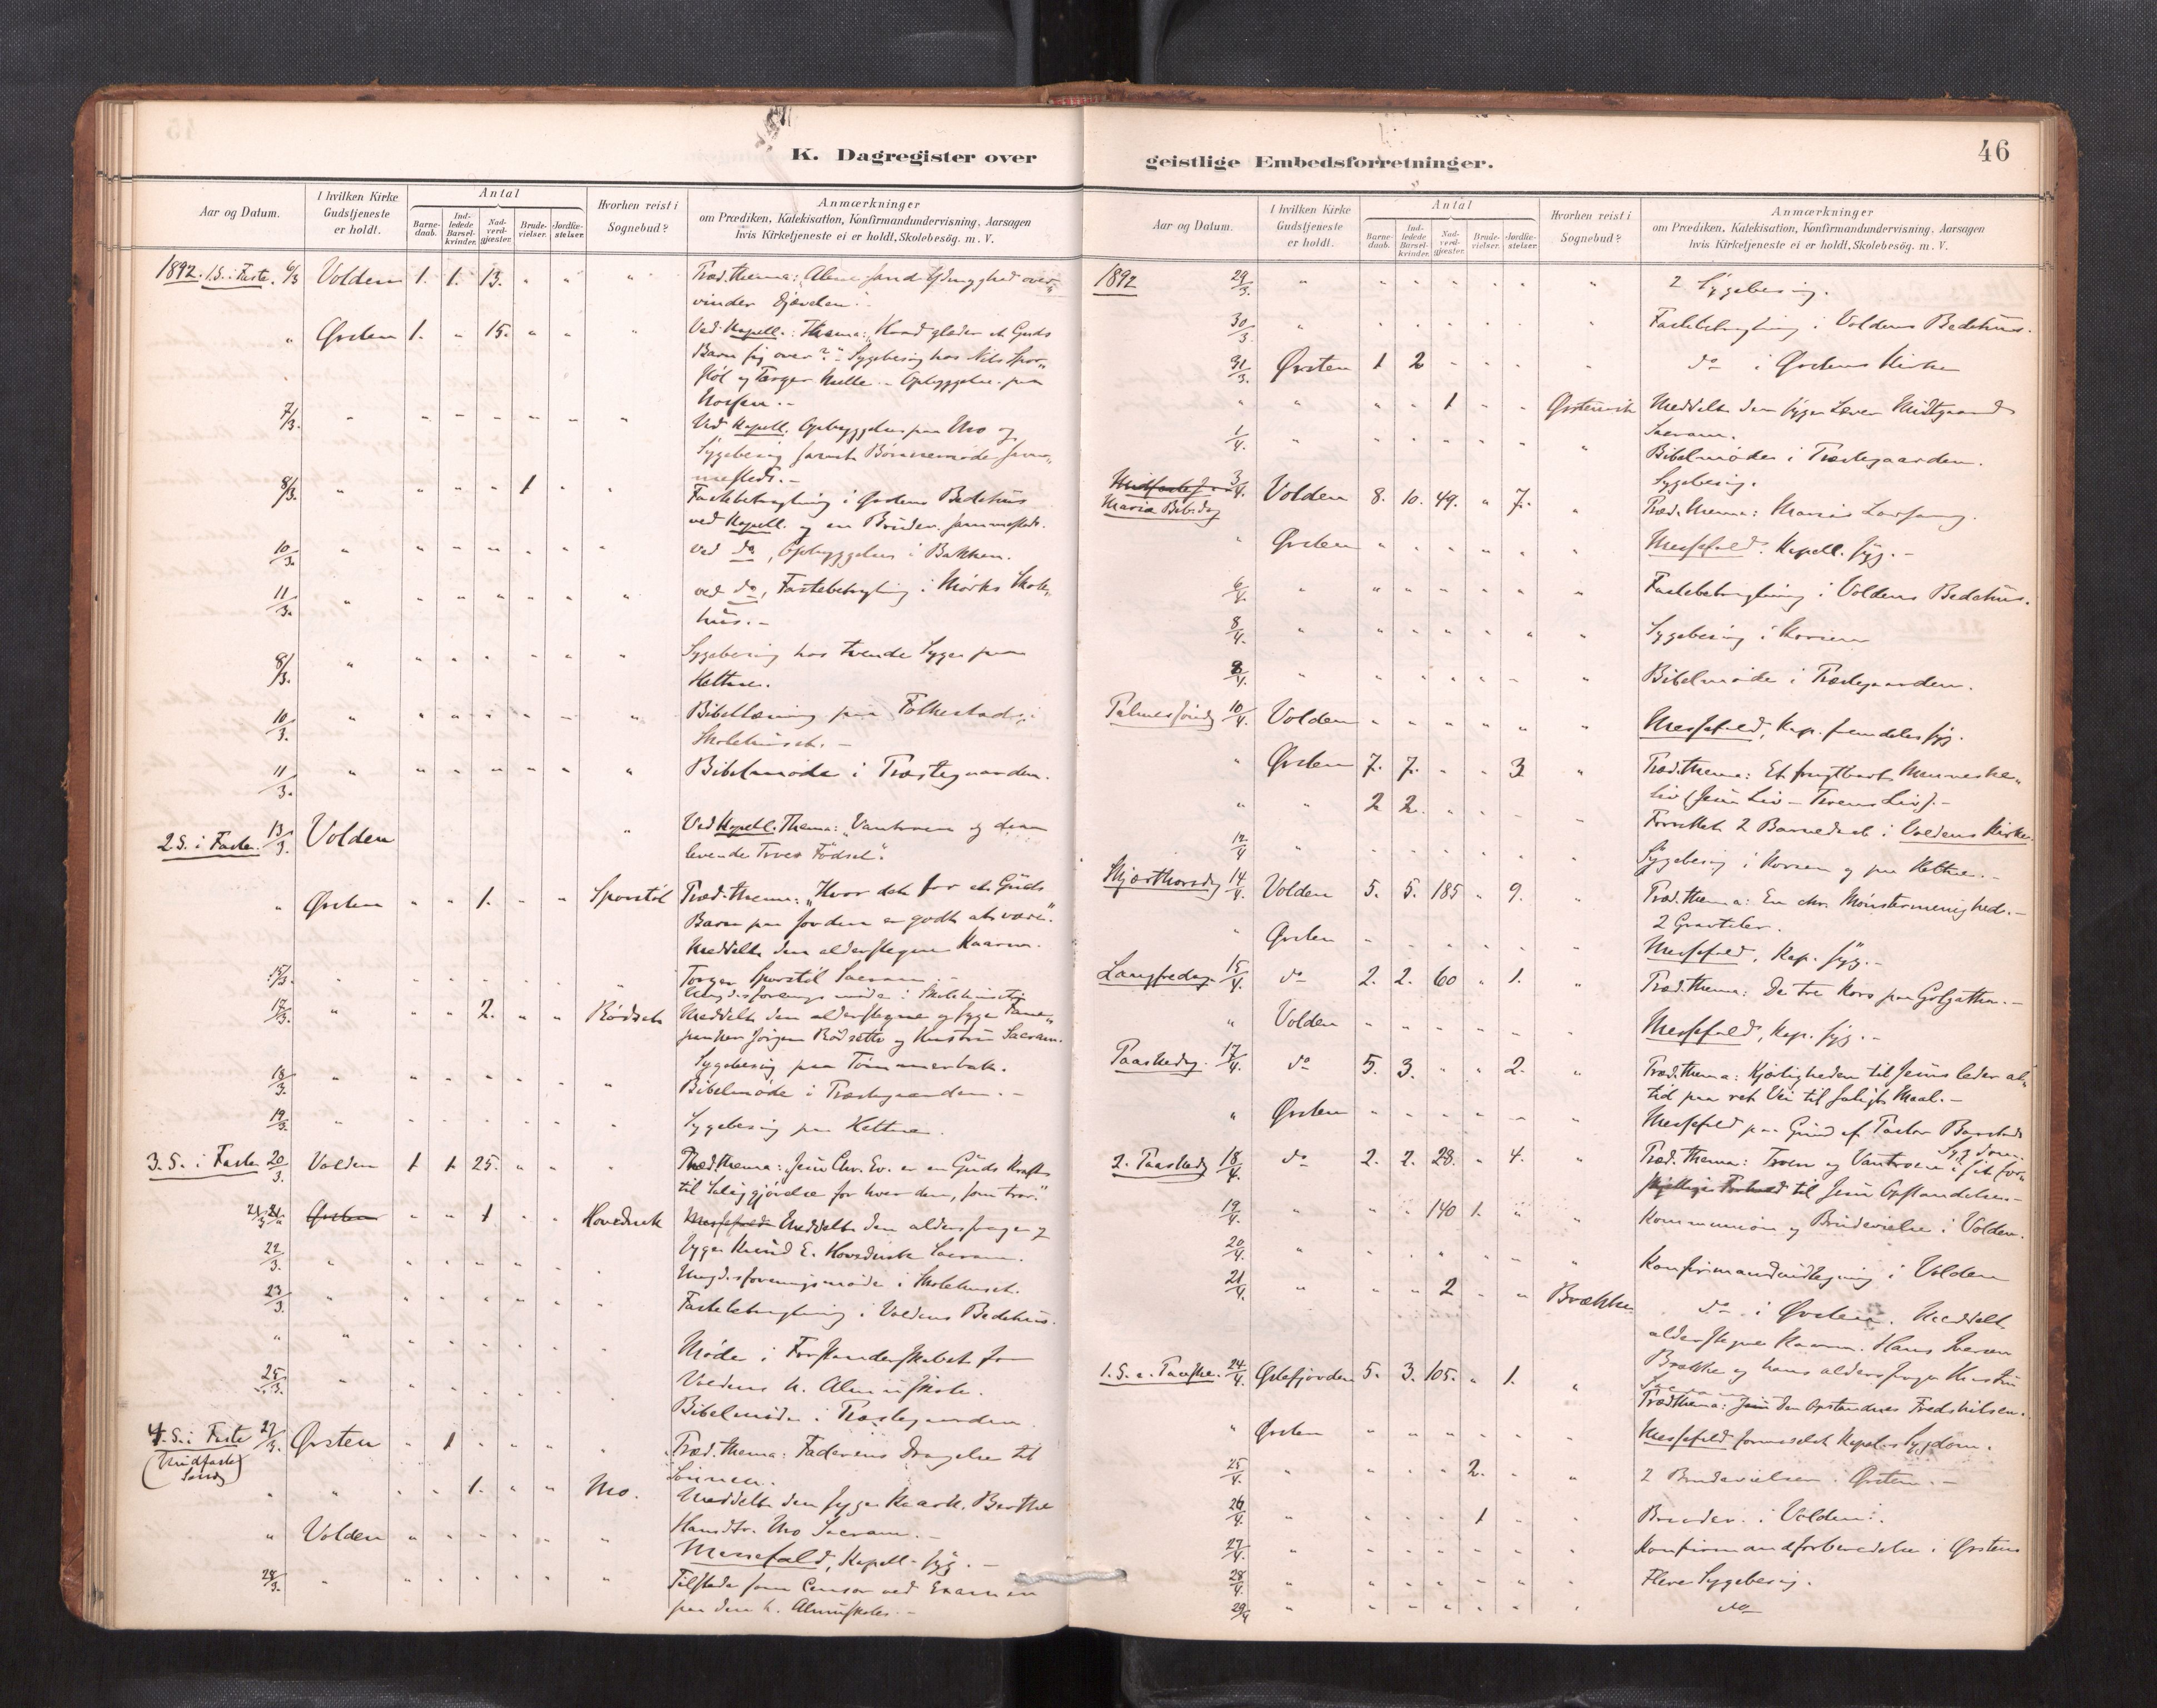 K. Dagregister over
Aar og Datum.
I hvilken Kirke
Gudstjeneste
er holdt.
Antal
Barne-
daab.
Ind-
ledede
Barsel-
kvinder.
Nad-
verd-
gjæster.
Brude-
vielser.
Jordfæ-
stelser.
Hvorhen reist i
Sognebud?
Anmærkninger
om Prædiken, Katekisation, Konfirmandundervisning, Aarsagen
hvis Kirketjeneste ei er holdt, Skolebesög. m. V.
1892. 1.S. i Faste. 6/3 Volden 1. 1. 13. " " " Præd. thema:
vinder Djævelen.
" Ørsten 1. " 15. " " " Ved Kapell.: Thema: Hvad glæder et Guds
Barn sig over? Sygebesøg hos Nils
Opbyggelse paa
7/3. " " " " " " " Ved Kapell. Opbyggelse paa Mo og
Sygebesøg samt Børnemøde
8/3. " " " " 1 " " Fastebetragtning i Ørstens Bedehus
ved Kapell. og en Brudev. sammesteds.
10/3. " " " " " " " ved do, Opbyggelse i Bakken.
11/3. " " " " " " " ved do, Fastebetragtning i Mørks Skole-
hus.-
8/3. " " " " " " " Sygebesøg hos tvende Syge paa
10/3. " " " " " " " Bibellæsning paa Folkestad
Skolehuset. -
11/3. " " " " " " " Bibelmøde i Præstegaarden.
2.S. i Faste. 13/3. Volden " Ved Kapell. Thema: "Vantroen og den
levende Troes Fødsel".
" Ørsten " " 1. " " Sporstöl Præd. thema: "Hvor det for et Guds
Barn paa Jorden er godt at være".
Meddelt den alderstegne Kaarm.
15/3. " Sporstöl Sacram.
17/3. " " " 2. " " Rödset Meddelt den alderstegne og syge
Jörgen Rödsette og Hustru Sacram.
Sygebesøg paa Tømmerbak.
18/3. " " " " " " " Bibelmøde i Præstegaarden. -
19/3. " " " " " " " Sygebesøg paa
3. S. i Faste 20/3. Volden 1 1 25. " " " Præd. thema: Jesu Chr. Ev. er en Guds Kraft
til Saliggjørelse for hver den, som tror."
21/3 Ørsten " " 1 " " Hovdenak Messefald Meddelt den aldersvage og
syge Knud E. Hovdenak Sacram.
22/3. " " " " " " " Ungdsforeningsmøde i Skolehuset.
23/3. " " " " " " " Fastebetragtning i Voldens Bedehus.
" " " " " " " Møde i Forstanderskabet for
Voldens h. Almueskole.
25/3. " " Bibelmøde i Præstegaarden.
4. S. i Faste 27/3. Ørsten " 1 " " " " Præd. thema: Faderens Dragelse til
(Midfaste
Sønd.)
Sönnen.
" " " " 1. " " Mo. Meddelt den syge Kaark. Berthe
Hansdtr. Mo Sacram. -
" Volden " " " " " " Messefald, Kapell. syg. -
28/3. " " " " " " " Tilstede som Censor ved Examen
paa den h. Almueskole. -
46
geistlige Embedsforretninger.
Aar og Datum.
I hvilken Kirke
Gudstjeneste
er holdt.
Antal
Barne-
daab.
Ind-
ledede
Barsel-
kvinder.
Nad-
verd-
gjæster.
Brude-
vielser.
Jordfæ-
stelser.
Hvorhen reist i
Sognebud?
Anmærkninger
om Prædiken, Katekisation, Konfirmandundervisning, Aarsagen
hvis Kirketjeneste ei er holdt, Skolebesög. m. V.
1892 29/3. " " " " " " " 2 Sygebesøg.
30/3. " " " " " " " Fastebetragtning i Voldens Bedehus.
31/3. Ørsten 1 2 " " " do i Ørstens Kirke
" " " " 1 " " Ørstenvik Meddelt den syge Midtgaard
Sacram.
1/4. " " " " " " " Bibelmøde i Præstegaarden.
Sygebesøg.
3/4. Volden 8. 10. 49. " 7. " Præd. thema: Marias Lovsang.
Maria Beb.dag
" Ørsten " " " " " " Messefald. Kapell. syg. -
6/4. " " " " " " " Fastebetragtning i Voldens Bedehus.
8/4. " " " " " " " Sygebesøg i
8/4. " " " " " " " Bibelmøde i Præstegaarden.
Palmesønd. 10/4. Volden " " " " " " Messefald, Kap. fremdeles syg.
" Ørsten 7. 7. " " 3 " Præd. thema: Et frugtbart Menneske-
liv (Jesu Liv - Troens Liv). -
" " 2 2. " " " " Forrettet 2 Barnedaab i Voldens Kirke.
12/4 " " " " " " " Sygebesøg i
Skjærthorsdg 14/4. Volden 5. 5. 185 " 9. " Præd. thema: En chr. Mønstermenighed. -
2 Gravtaler.
" Ørsten " " " " " " Messefald, Kap. syg. -
Langfredag. 15/4. do 2. 2. 60 " 1. " Præd. thema: De tre Kors paa Golgatha. -
" Volden " " " " " " Messefald, Kap. syg. -
Paaskedag. 17/4. do 5. 3. " " 2. " Præd. thema: Kjærligheden til Jesus leder al-
tid paa ret Vei til saligt Maal. -
" Ørsten " " " " " " Messefald paa Grund af Pastor Barstads
Sygdom.
2. Paaskedg 18/4. do 2. 2. 28. " 4. " Præd. thema: Troen og Vantroen i sit for-
skjellige Forhold til Jesu Opstandelse. -
19/4. " " " 140 1. " " Kommunion og Brudevielse i Volden.
20/4. " " " " " " " Konfirmandudtegning i Volden
21/4. " " " 2 " " Brække. do i Ørsten. Meddelt
alderstegne Kaarm. Hans Iversen
Brække og hans aldersvage Hustru
Sacram.
1. S. e. Paaske. 24/4. Østefjorden 5. 3. 105. " 1. " Præd. thema: Jesu den Opstandnes Fredshilsen.
" Ørsten " " " " " " Messefald formedelst Kapel.s Sygdom.
25/4. " " " " 2. " " 2 Brudevielser. Ørsten. -
26/4. " " " " 1 " " Brudev. i Volden.
27/4. " " " " " " " Konfirmandforberedelse i Ørsten
28/4. " " " " " " " Flere Sygebesøg.
29/4 " " " " " " " do